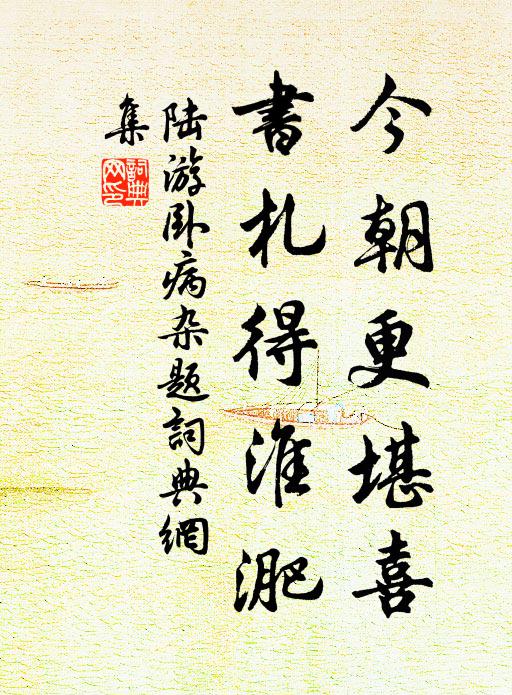 今朝更堪喜
書札得淮淝
陆游卧病杂题詞典網
集
詞典
网印